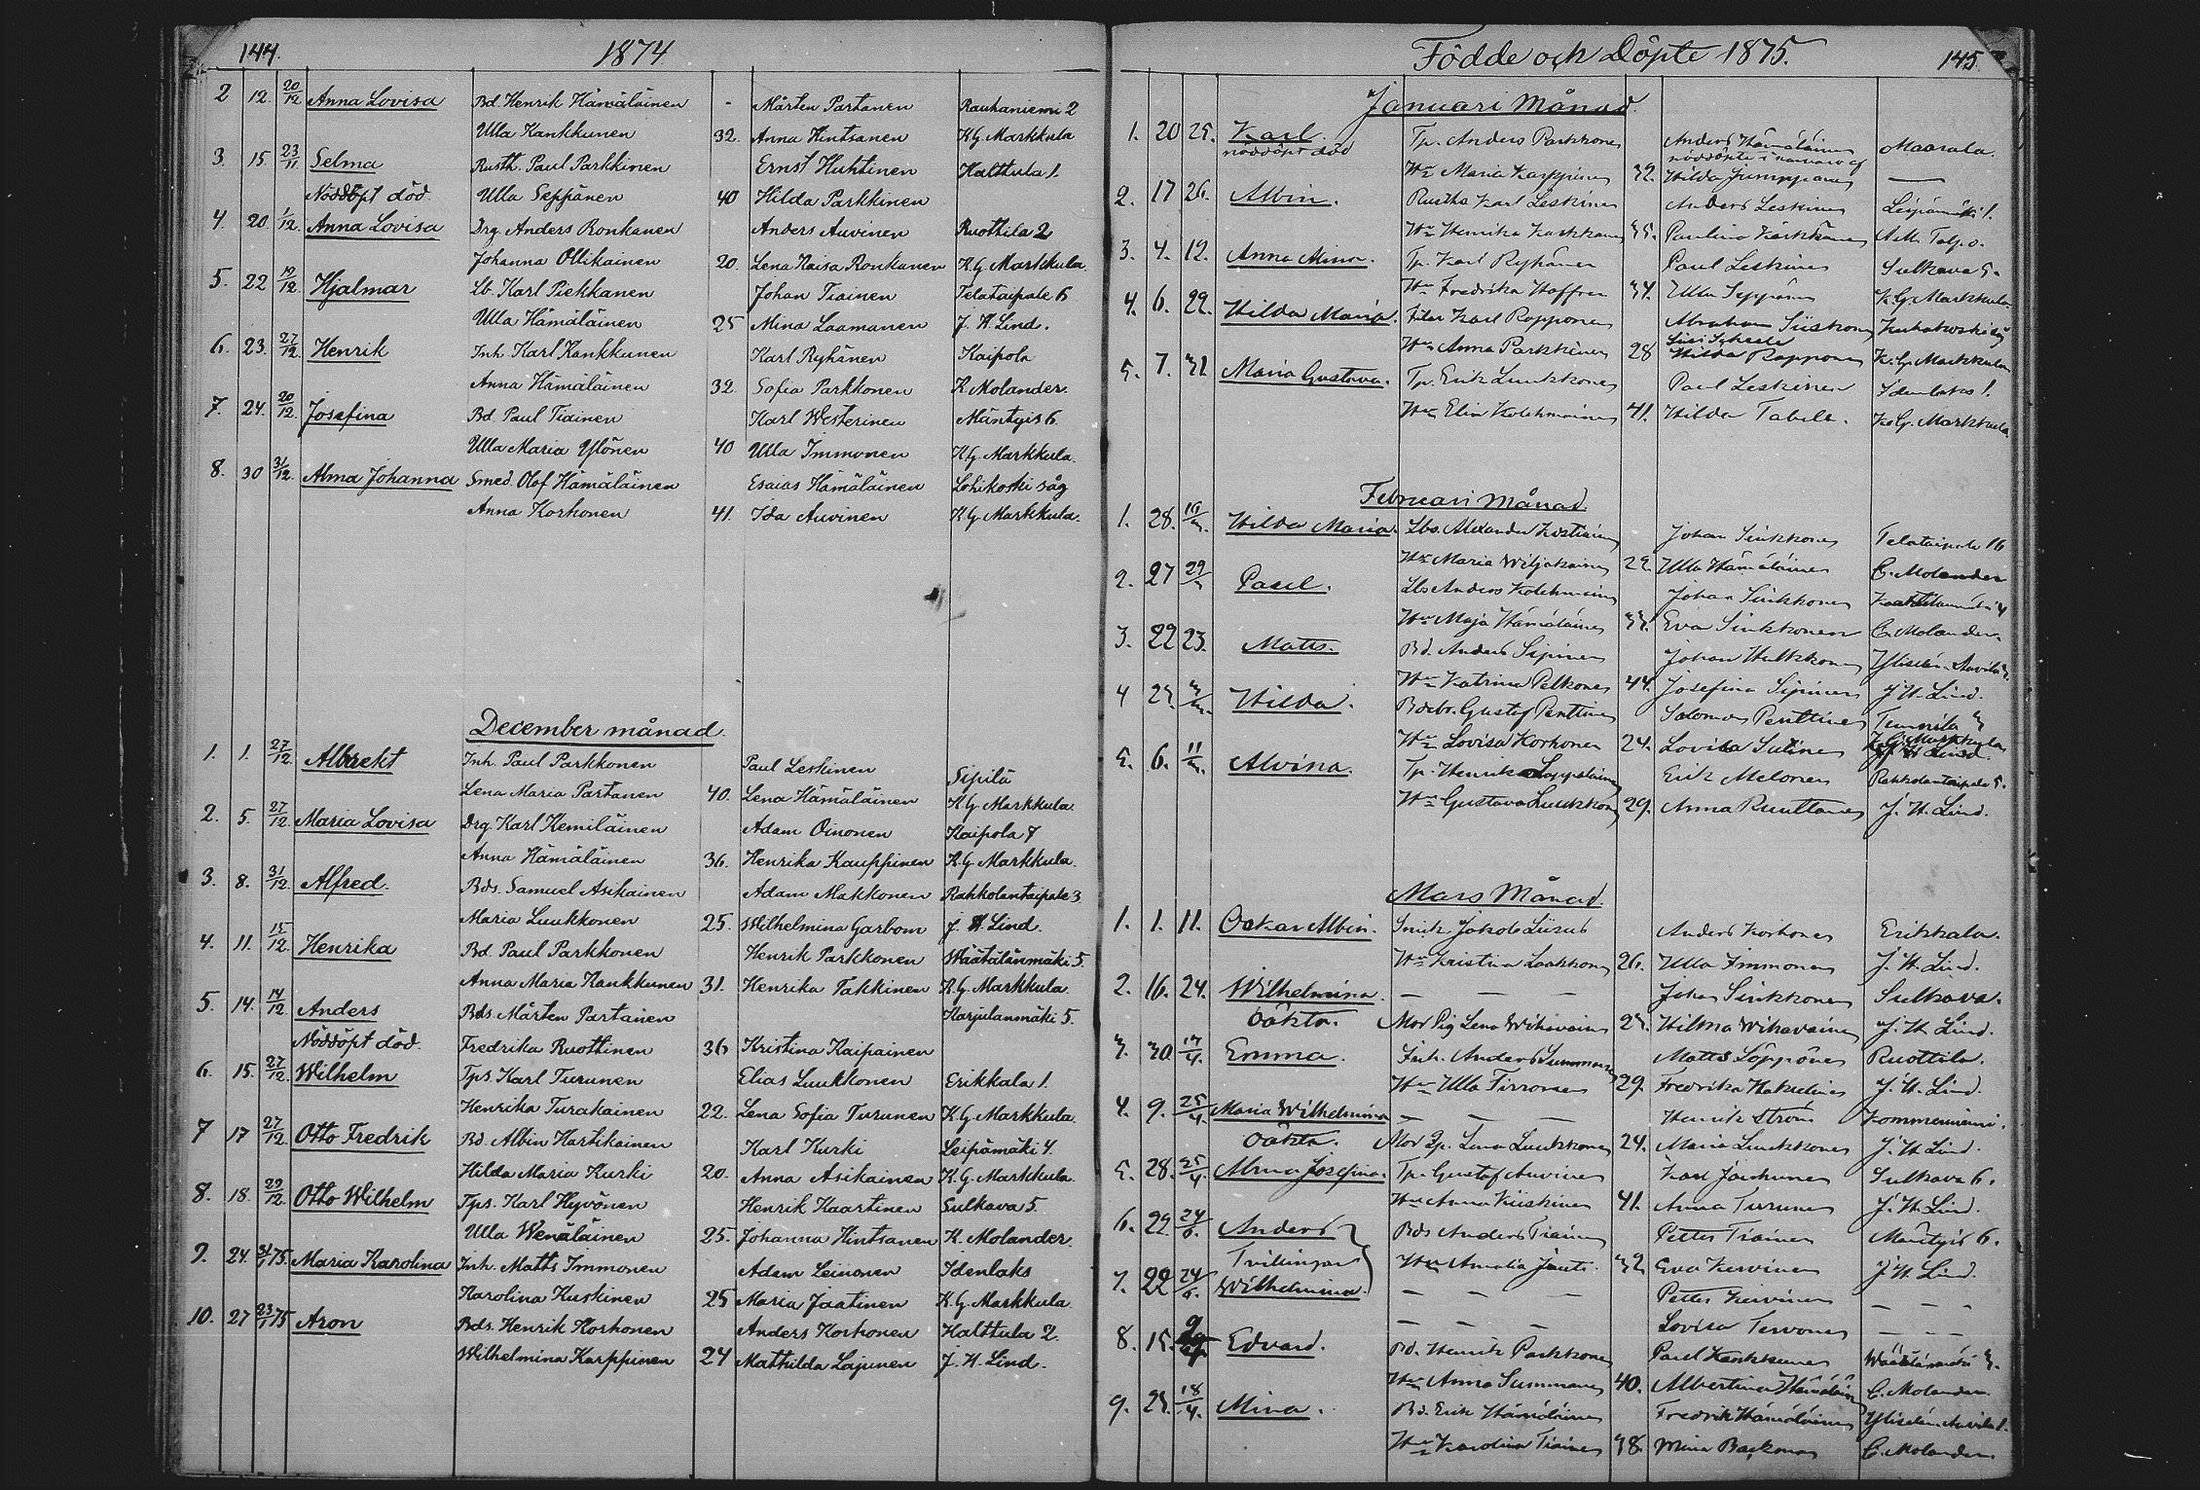 144. 1874
2 12. 20/12 Anna Lovisa Bd. Henrik Hämäläinen - Mårten Partanen Rauhaniemi 2
Ulla Kankkunen 32. Anna Hintsanen K.G. Markkula
3. 15. 23/11. Selma Rusth. Paul Parkkinen Ernst Huhtinen Halttula 1.
Nöddöpt död Ulla Seppänen 40 Hilda Parkkinen
4. 20. 1/12. Anna Lovisa Drg. Anders Ronkanen Anders Auvinen Ruottila 2
Johanna Ollikainen 20. Lena Kaisa Ronkanen K.G. Markkula.
5. 22 19/12. Hjalmar Lb. Karl Piekkanen Johan Tiainen Telataipale 6
Ulla Hämäläinen 25 Mina Laamanen J. H. Lind.
6. 23. 27/12. Henrik Inh. Karl Kankkunen Karl Ryhänen Kaipola
Anna Hämäläinen 32. Sofia Parkkonen K. Molander.
7. 24. 20/12. Josefina Bd. Paul Tiainen Karl Westerinen Mäntyis 6.
Ulla Maria Ylönen 40 Ulla Immonen K.G. Markkula.
8. 30 31/12. Alma Johanna Smed. Olof Hämäläinen Esaias Hämäläinen Lohikoski såg
Anna Korhonen 41. Ida Auvinen K.G. Markkula.
December månad.
1. 1. 27/12. Albrekt Inh. Paul Parkkonen Paul Leskinen Sipilä
Lena Maria Partanen 40. Lena Hämäläinen K.G. Markkula.
2. 5. 27/12. Maria Lovisa Drg. Karl Kemiläinen Adam Oinonen Kaipola 8
Anna Hämäläinen 36. Henrika Kauppinen K.G. Markkula.
3. 8. 31/12. Alfred. Bds. Samuel Asikainen Adam Makkonen Rakkolantaipale 3
Maria Luukkonen 25. Wilhelmina Garbom J. H. Lind.
4. 11. 15/12. Henrika Bd. Paul Parkkonen Henrik Parkkonen Wäätälänmäki 5.
Anna Maria Kankkunen 31. Henrika Takkinen K.G. Markkula.
5. 14. 14/12 Anders Bds. Mårten Partanen Karjulanmäki 5.
Nöddöpt död. Fredrika Ruottinen 36 Kristina Kaipainen
6. 15. 27/12. Wilhelm Tps. Karl Turunen Elias Luukkonen Erikkala 1.
Henrika Turakainen 22. Lena Sofia Turunen K.G. Markkula.
7 17 27/12. Otto Fredrik Bd. Albin Hartikainen Karl Kurki Leipämäki 4.
Hilda Maria Kurki 20. Anna Asikainen K.G. Markkula.
8. 18. 29/12. Otto Wilhelm Tps. Karl Hyvönen Henrik Kaartinen Sulkava 5.
Ulla Wenäläinen 25. Johanna Hintsanen K. Molander.
9. 24. 31/1 75. Maria Karolina Inh. Matts Immonen Adam Leinonen Idenlaks
Karolina Kuskinen 25 Maria Jaatinen K.G. Markkula.
10. 27 23/1 75 Aron Bds. Henrik Korhonen Anders Korhonen Halttula 2.
Wilhelmina Karppinen 24 Mathilda Lajunen J. H. Lind.
Födde och Döpte 1875. 145.
Januari Månad.
1. 20 25. Karl. Tp. Anders Parkkonen Anders Hämäläinen Maarala.
nöddöpt död nöddöpte i närvaro af
Hu Maria Karppinen 32. Hilda Jumppanen —
2. 17 26. Albin. Rusth. Karl Leskinen Anders Leskinen Leipämäki 1.
Hu Henrika Karkkanen 35. Paulina Kärkkänen A.M. Talpo.
3. 4. 12. Anna Mina. Tp. Karl Ryhänen Paul Leskinen Sulkava 5.
Hu Fredrika Hoffren 34. Ulla Seppänen K.G. Markkula.
4. 6. 22. Hilda Maria. Karl Ropponen Abraham Siiskonen
Hu Anna Parkkinen 28 Hilda Ropponen K.G. Markkula
5. 7. 31 Maria Gustava. Tp. Erik Luukkonen Paul Leskinen Idenlaks 1.
Hu Elin Kolehmainen 41. Hilda Tabell. K.G. Markkula.
Februari Månad.
1. 28. Hilda Maria. Lbs. Alexander Kostiainen Johan Sinkkonen Telataipale 16
Hu Maria Wiljakainen 22. Ulla Hämäläinen C. Molander
2. 27 Paul. Lbs Anders Kolehmainen Johan Sinkkonen
Hu Maja Hämäläinen 33. Eva Sinkkonen C. Molander.
3. 22 23. Matts. Bd. Anders Sipinen Johan Hulkkonen
Hu Katrina Pelkonen 44. Josefina Sipinen J. H. Lind.
4 23. Hilda. Bdebr. Gustaf Penttinen Salomon Penttinen Tunnila 3
Hu Lovisa Korhonen 24. Lovisa Sutinen K.G. Markkula
5. 6. 11 Alvina. Tp. Henrik Loppolainen Erik Melonen Rakkolantaipale 5.
Hu Gustava Luukkonen 29. Anna Ruuttanen J. H. Lind.
Mars Månad.
1. 1. 11. Oskar Albin. Smed. Jakob Liirus Anders Korhonen Erikkala.
Hu Kristina Laakkonen 26. Ulla Immonen J. H. Lind.
2. 16. 24. Wilhelmina. — — — Johan Sinkkonen Sulkava.
Oäkta. Mor Pig Lena Wihavainen 23. Hilma Wihavainen J. H. Lind.
3. 30. 17/4. Emma. Inh. Anders Summanen Matts Löppönen Ruottila.
Hu Ulla Tirronen 29. Fredrika Hakulinen J. H. Lind.
4. 9. 25/4. Maria Wilhelmina — — — Henrik Ström Kommerniemi.
Oäkta. Mor Lp. Lena Luukkonen 24. Maria Luukkonen J. H. Lind.
5. 28. 25/4. Alma Josefina. Tp. Gustaf Auvinen Karl Jaakkonen Sulkava 6.
Hu Anna Kuiskinen 41. Anna Turunen J. H. Lind.
6. 22. 24/6. Anders Bds Anders Tiainen Petter Tiainen Mäntyis 6.
Tvillingar Hu Amalia Jantti. 32 Eva Kervinen J. H. Lind.
7. 22 24/6. Wilhelmina. — — — Petter Kervinen — — —
— — — Lovisa Tervonen — — —
8. 15. Edvard. Bd. Henrik Parkkonen Paul Kankkunen Wäätälänmäki 3.
Hu Anna Summanen 40. Albertina Hämäläinen C. Molander.
9. 23. 18/4. Mina. Bd. Erik Hämäläinen Fredrik Hämäläinen
Hu Karolina Tiainen 38. Mina Backman C. Molander.